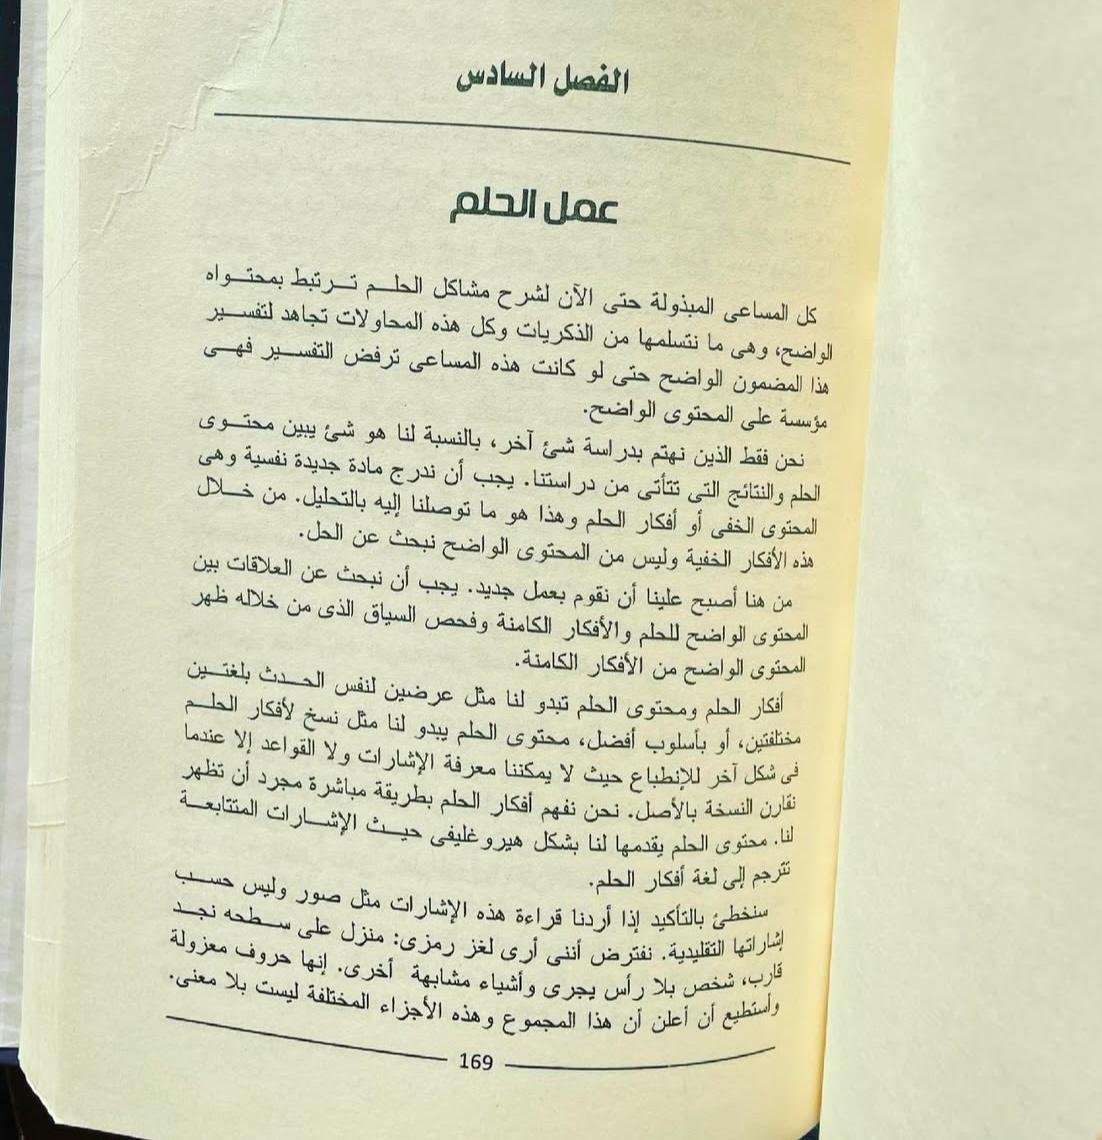 الفصل السادس
عمل الحلم
كل المساعى المبذولة حتى الآن لشرح مشاكل الحلم ترتبط بمحتواه
الواضح، وهى ما نتسلمها من الذكريات وكل هذه المحاولات تجاهد لتفسير
هذا المضمون الواضح حتى لو كانت هذه المساعى ترفض التفسير فهى
مؤسسة على المحتوى الواضح.
نحن فقط الذين نهتم بدراسة شئ آخر، بالنسبة لنا هو شئ يبين محتوى
الحلم والنتائج التى تتأتى من دراستنا. يجب أن ندرج مادة جديدة نفسية وهى
المحتوى الخفى أو أفكار الحلم وهذا هو ما توصلنا إليه بالتحليل. من خلال
هذه الأفكار الخفية وليس من المحتوى الواضح نبحث عن الحل.
من هنا أصبح علينا أن نقوم بعمل جديد. يجب أن نبحث عن العلاقات بين
المحتوى الواضح للحلم والأفكار الكامنة وفحص السياق الذى من خلاله ظهر
المحتوى الواضح من الأفكار الكامنة.
أفكار الحلم ومحتوى الحلم تبدو لنا مثل عرضين لنفس الحدث بلغتين
مختلفتين، أو بأسلوب أفضل، محتوى الحلم يبدو لنا مثل نسخ لأفكار الحلم
فى شكل آخر للإنطباع حيث لا يمكننا معرفة الإشارات ولا القواعد إلا عندما
نقارن النسخة بالأصل. نحن نفهم أفكار الحلم بطريقة مباشرة مجرد أن تظهر
لنا. محتوى الحلم يقدمها لنا بشكل هيروغليفى حيث الإشارات المتتابعة
تترجم إلى لغة أفكار الحلم.
سنخطئ بالتأكيد إذا أردنا قراءة هذه الإشارات مثل صور وليس حسب
إشاراتها التقليدية. نفترض أننى أرى لغز رمزى: منزل على سطحه نجد
قارب، شخص بلا رأس يجرى وأشياء مشابهة أخرى. إنها حروف معزولة
وأستطيع أن أعلن أن هذا المجموع وهذه الأجزاء المختلفة ليست بلا معنى.
169